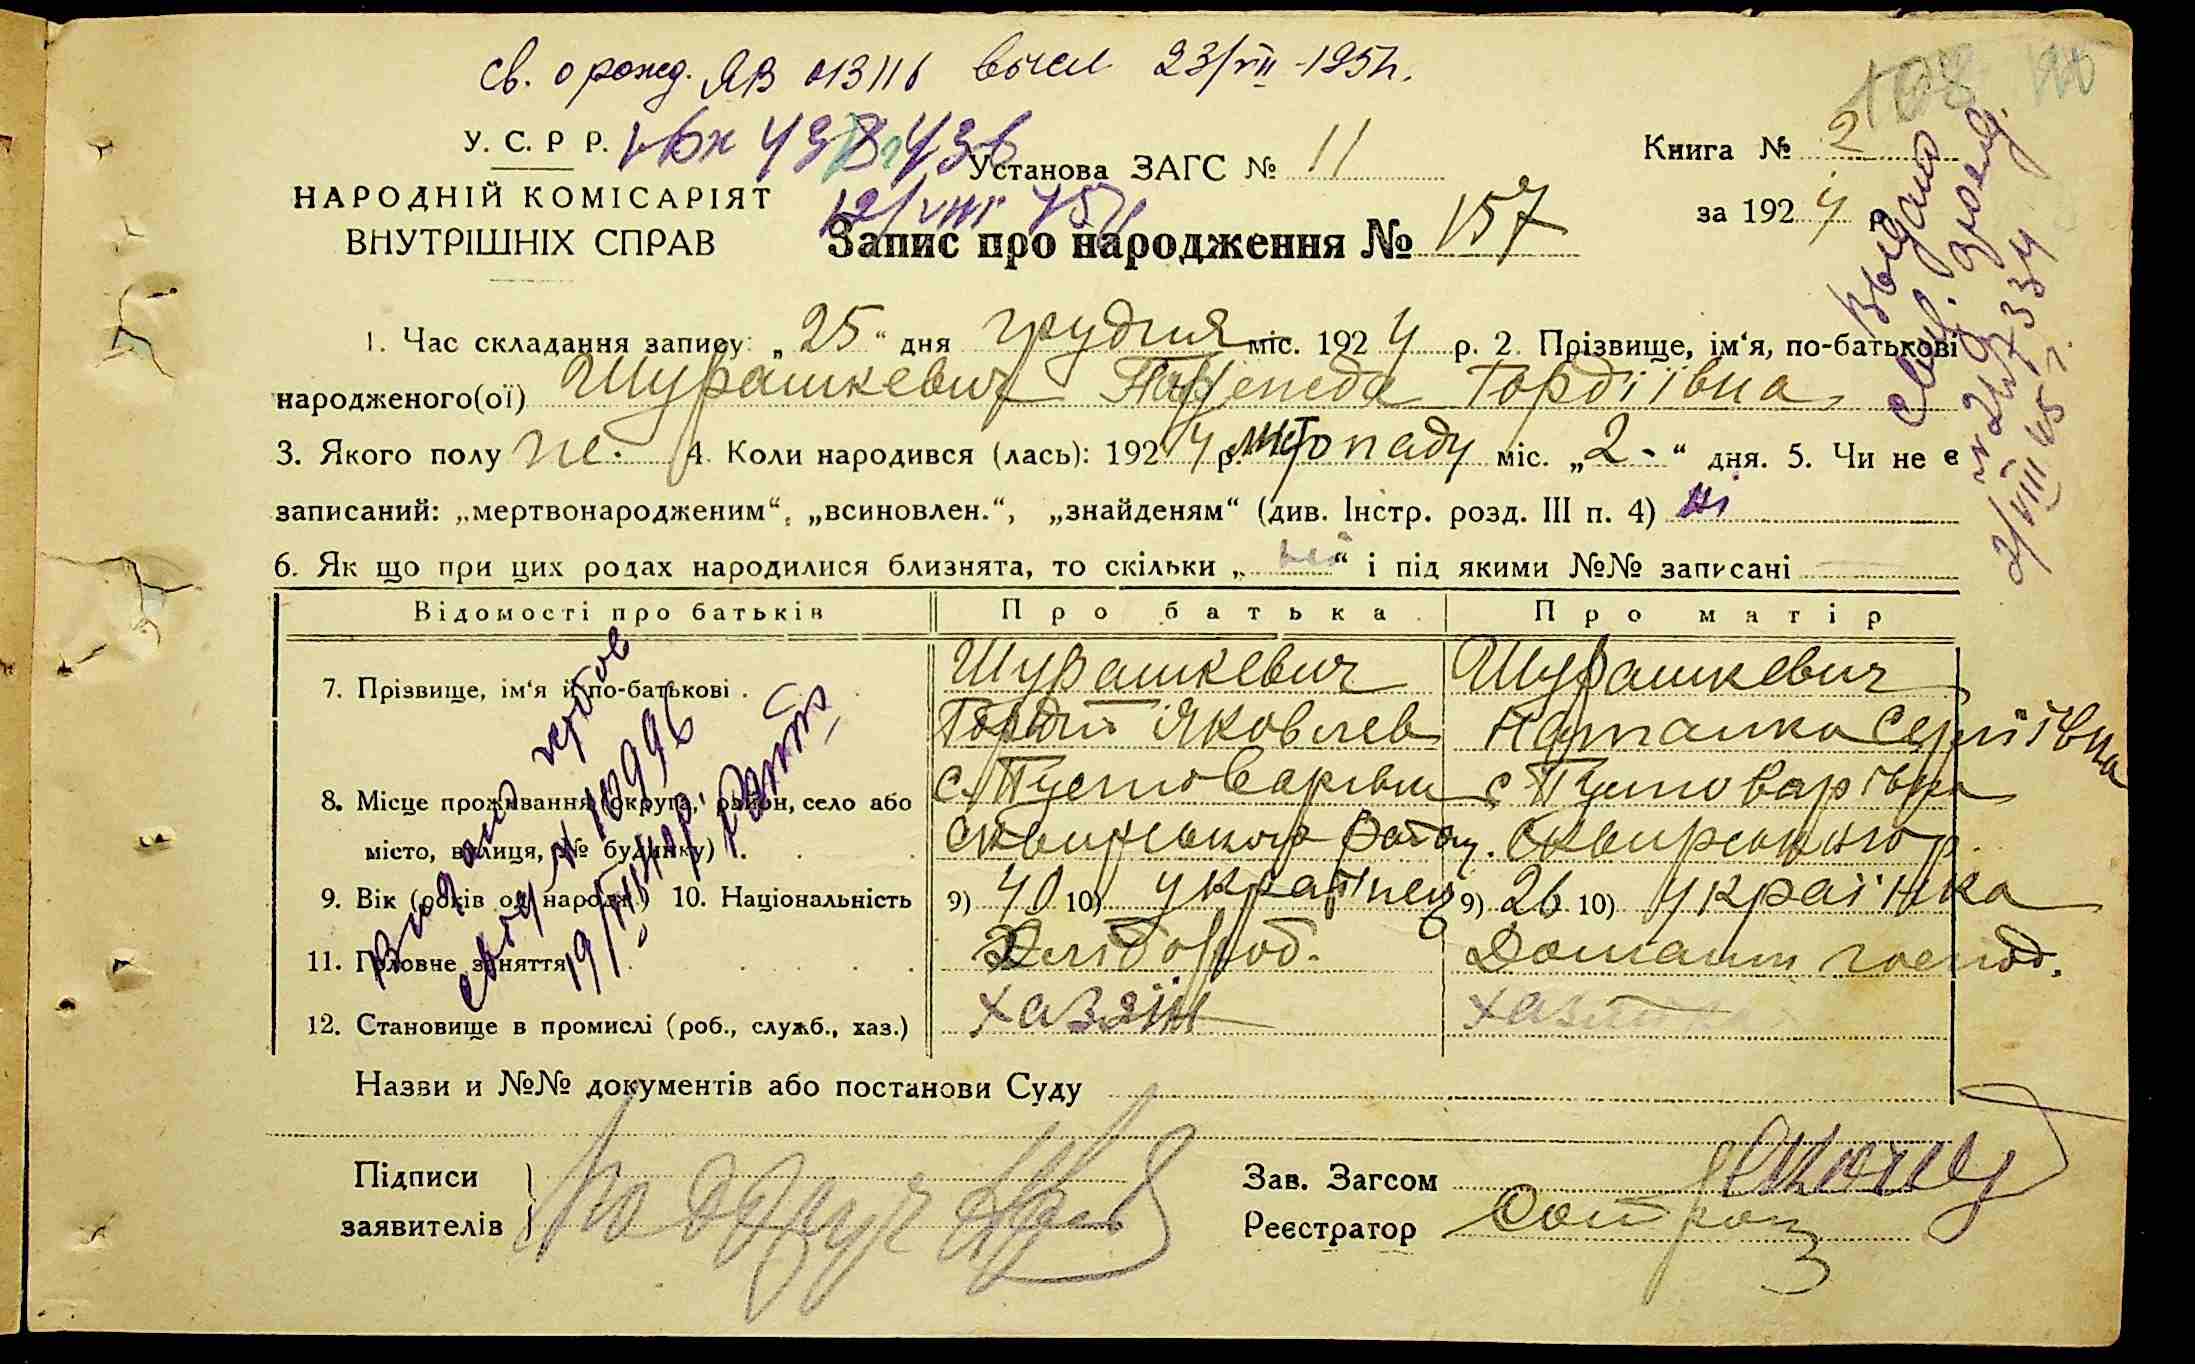 св. о рожд. ЯВ 013116 высл. 23/VII-1957г.
У. С. Р Р.
Установа ЗАГС № 11
Книга № 2
НАРОДНІЙ КОМІСАРІЯТ
ВНУТРІШНІХ СПРАВ
за 1924 р.
Запис про народження № 157
1. Час складання запису: „25“ дня грудня міс. 1924 р. 2. Прізвище, ім‘я, по-батькові
народженого(ої) Шурашкевич Гордіївна
3. Якого полу ж. 4. Коли народився (лась): 1924 р. листопаду міс. „2-“ дня. 5. Чи не є
записаний: „мертвонародженим“, „всиновлен.“, „знайденям“ (див. Інстр. розд. III п. 4) ні
6. Як що при цих родах народилися близнята, то скільки „ “ і під якими №№ записані
Відомості про батьків Про батька Про матір
7. Прізвище, ім‘я й по-батькові . Шурашкевич Шурашкевич
Гордій Яковлев Наталка Сергіївна
8. Місце проживання (округа, район, село або с. Пустоварівка с. Пустоварівка
місто, вулиця, № будинку) . Сквирського району. Сквирського р.
9. Вік (років од народж.) 10. Національність 9) 40 10) українец 9) 26 10) українка
11. Головне заняття Хлібороб. Домашн господ.
12. Становище в промислі (роб., служб., хаз.) хазяїн хазяйка
Назви и №№ документів або постанови Суду
Підписи
заявителів
Зав. Загсом
Реєстратор
Выдано
свид. о рожд.
2/VIII 65 г.
№ 10996